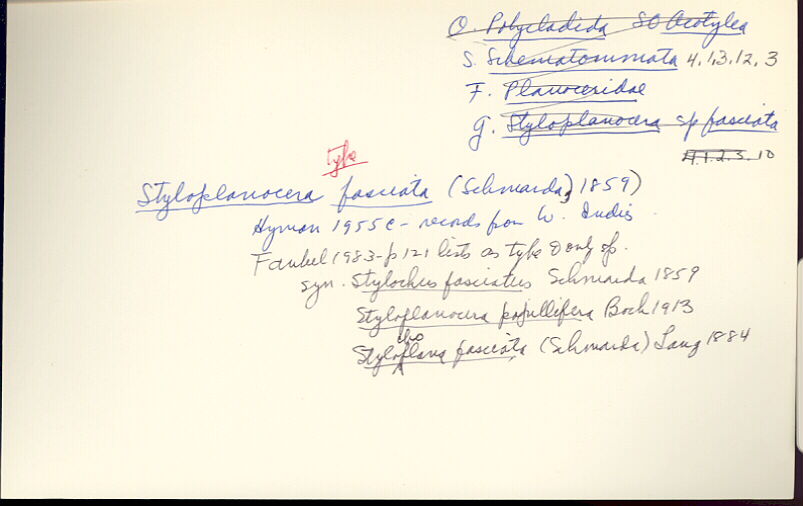 O. Polycladida SO Acotylea
S. Schematommata 4.1.3.12.3
F. Planoceridae
G. Styloplanocera sp fasciata
A.1.2.5.10
type
Styloplanocera fasciata (Schmarda, 1859)
Hyman 1955c - records from W. Indies
Faubel 1983 - p 121 lists as type & only sp.
syn. Stylochus fasciatus Schmarda 1859
Styloplanocera papillifera Bock 1913
Stylochoplana fasciata (Schmarda) Lang 1884